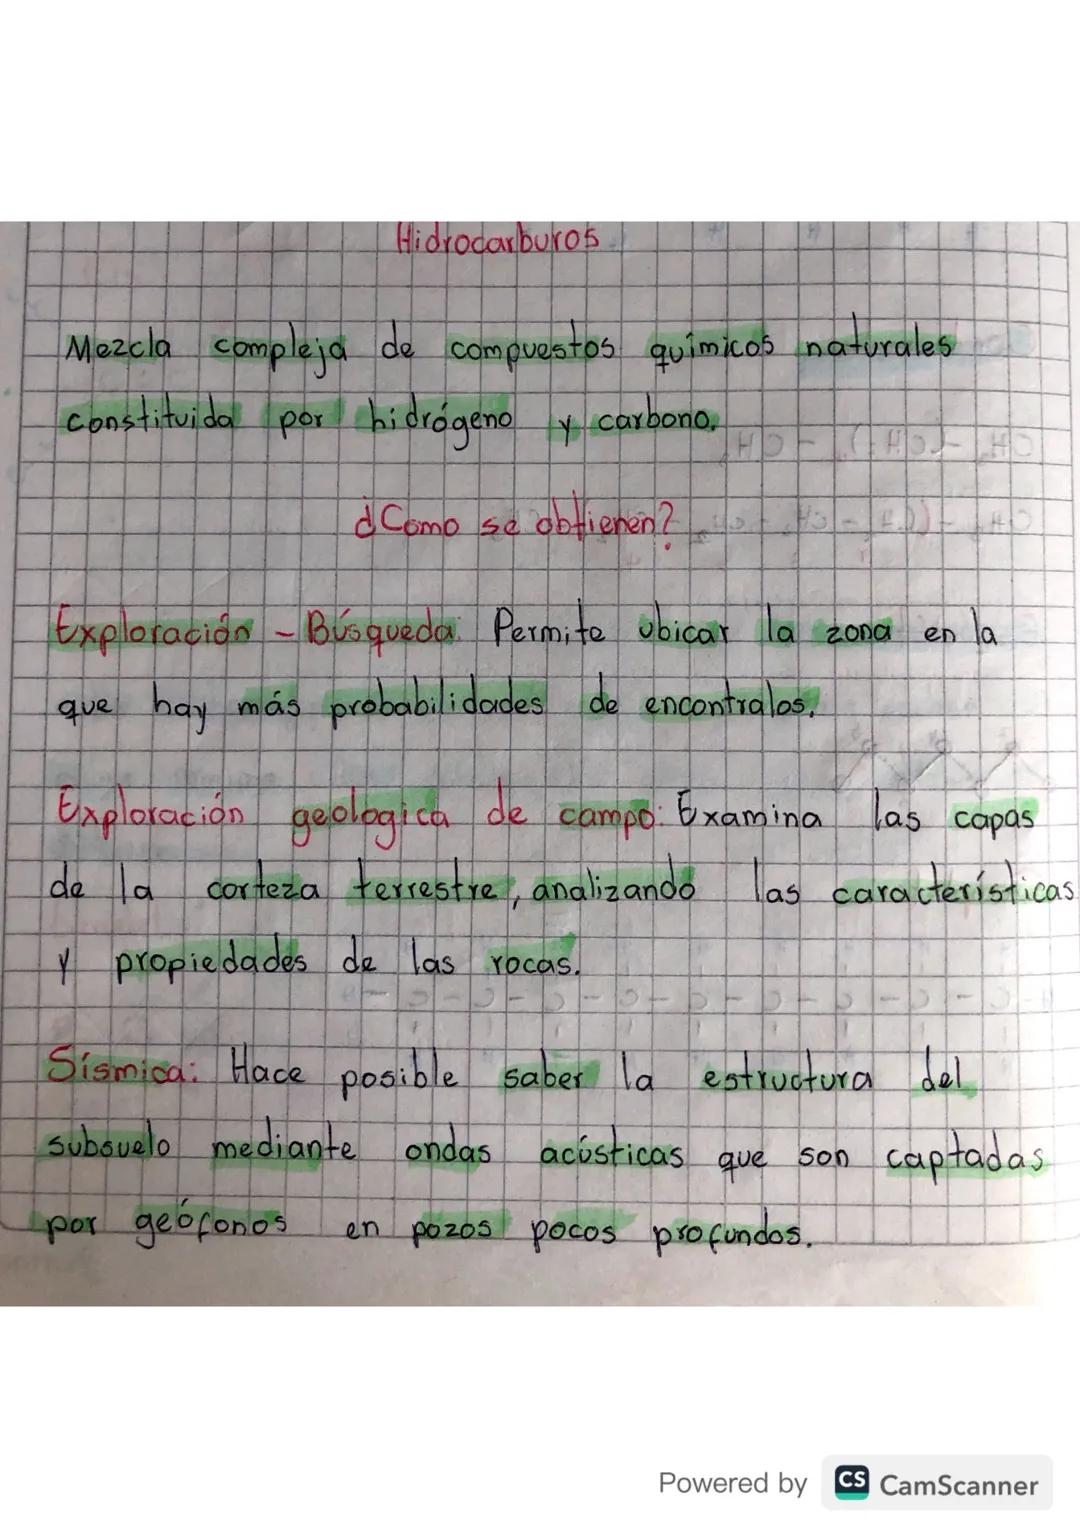 Hidrocarburos
Mezcla compleja de compuestos químicos naturales
constituida por hidrógeno y carbono.
¿Como se obtienen?
Exploración - Búsqueda: Permite ubicar la zona en la
que hay más probabilidades de encontralos.
Exploración geologica de campo: Examina las capas
de la corteza terrestre, analizando las características
y propiedades de las rocas.
Sísmica: Hace posible saber la estructura del
subsuelo mediante ondas acústicas que son captadas
por geófonos en pozos pocos profundos.
Powered by CS CamScanner